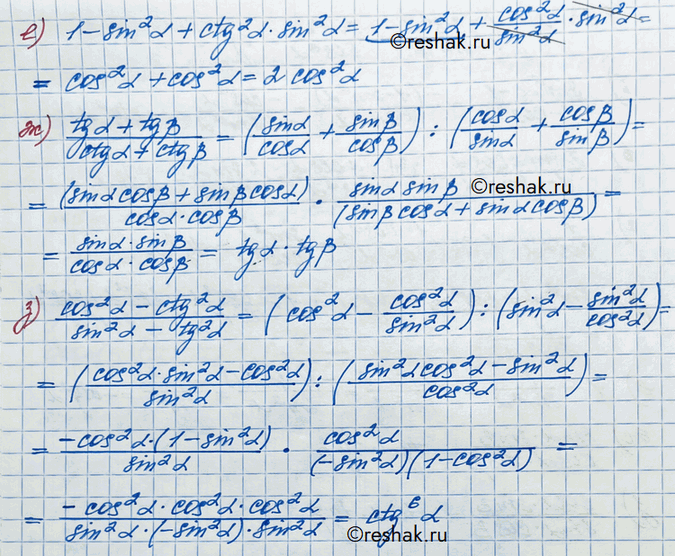 е) 1-sin²α + ctg²α·sin²α = 1-sin²α + cos²α/sin²α · sin²α =
©reshak.ru
= cos²α + cos²α = 2cos²α
ж) (tgα + tgβ)/(ctgα + ctgβ) = (sinα/cosα + sinβ/cosβ) : (cosα/sinα + cosβ/sinβ) =
= (sinα cosβ + sinβ cosα)/(cosα·cosβ) · (sinα sinβ)/(sinβ cosα + sinα cosβ) =
©reshak.ru
= (sinα·sinβ)/(cosα·cosβ) = tgα·tgβ
з) (cos²α - ctg²α)/(sin²α - tg²α) = (cos²α - cos²α/sin²α) : (sin²α - sin²α/cos²α) =
= ((cos²α·sin²α - cos²α)/sin²α) : ((sin²α cos²α - sin²α)/cos²α) =
= (-cos²α·(1-sin²α))/sin²α · cos²α/((-sin²α)(1-cos²α)) =
= (-cos²α·cos²α·cos²α)/(sin²α·(-sin²α)·sin²α) = ctg⁶α
©reshak.ru